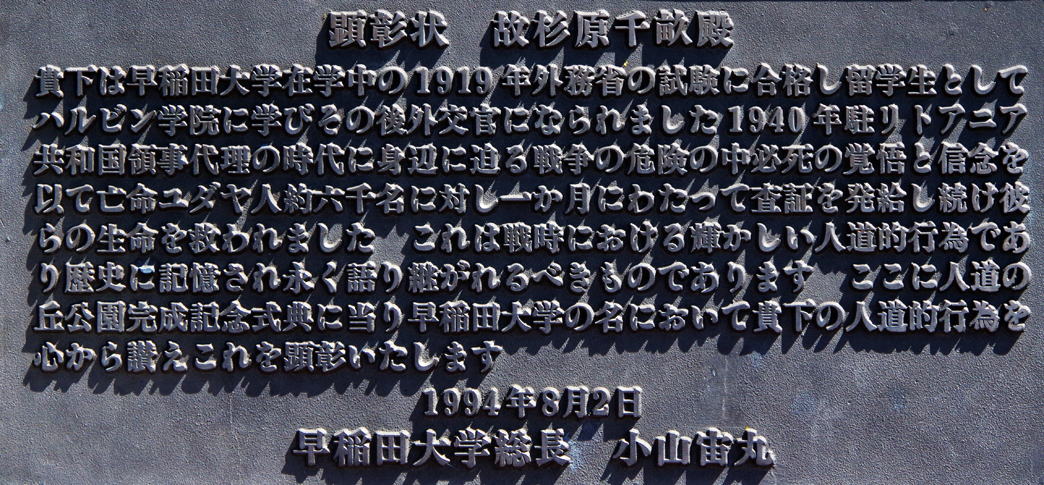 顕彰状　故杉原千畝殿
貴下は早稲田大学在学中の1919年外務省の試験に合格し留学生として
ハルビン学院に学びその後外交官になられました1940年駐リトアニア
共和国領事代理の時代に身辺に迫る戦争の危険の中必死の覚悟と信念を
以て亡命ユダヤ人約六千名に対し一か月にわたって査証を発給し続け彼
らの生命を救われました　これは戦時における輝かしい人道的行為であ
り歴史に記憶され永く語り継がれるべきものであります　ここに人道の
丘公園完成記念式典に当り早稲田大学の名において貴下の人道的行為を
心から讃えこれを顕彰いたします
1994年8月2日
早稲田大学総長　小山宙丸